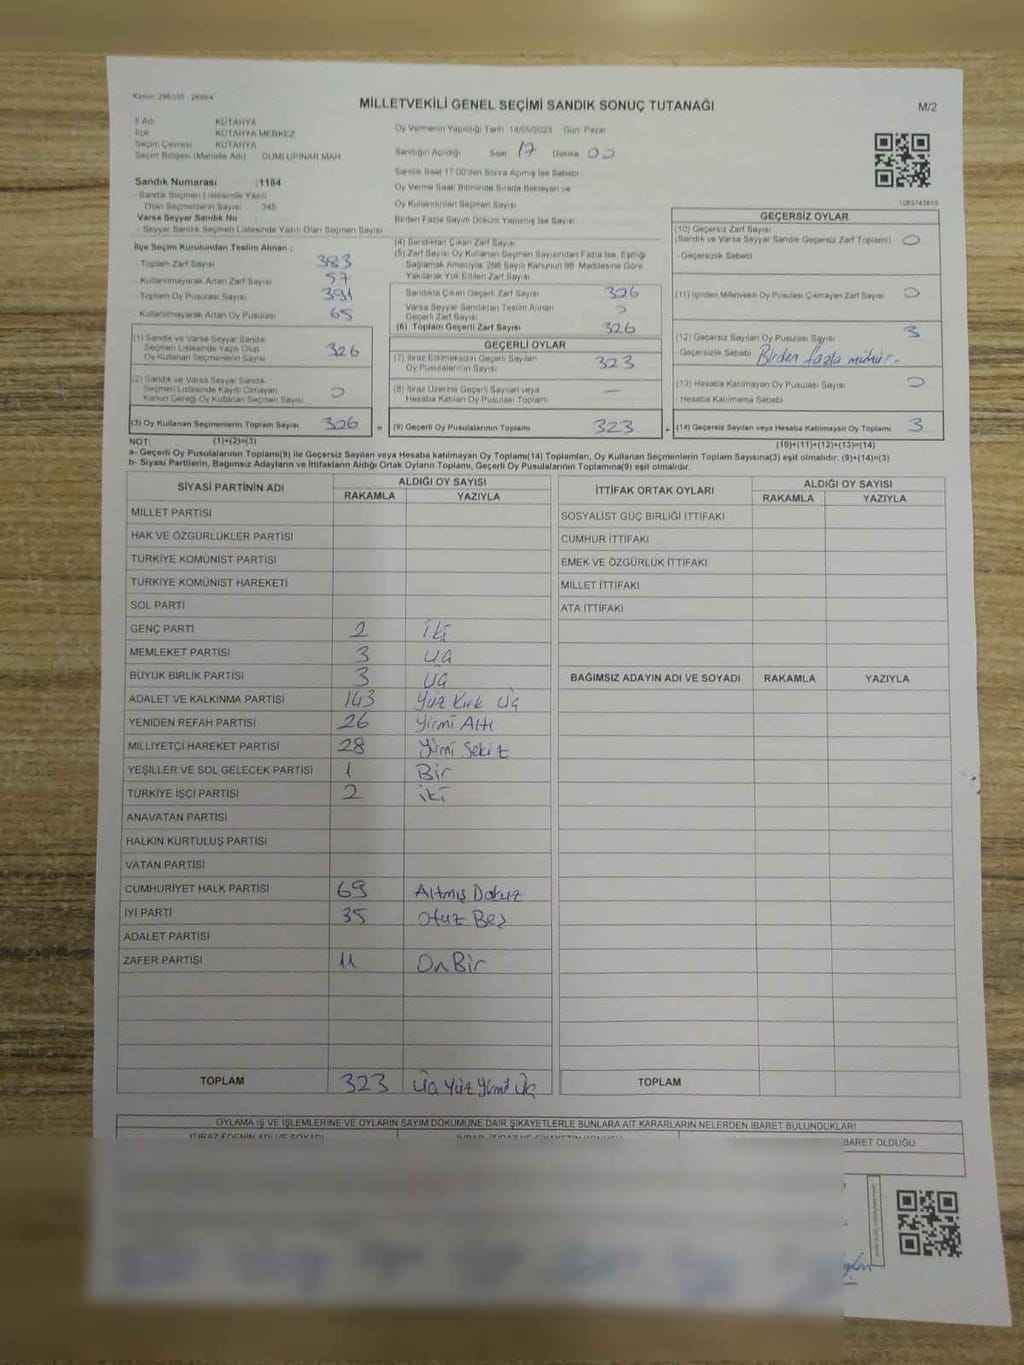 Kanun: 298/105 - 2839/4
MİLLETVEKİLİ GENEL SEÇİMİ SANDIK SONUÇ TUTANAĞI
M/2
İl Adı KÜTAHYA
İlçe KÜTAHYA MERKEZ
Seçim Çevresi KÜTAHYA
Seçim Bölgesi (Mahalle Adı) DUMLUPINAR MAH
Sandık Numarası : 1164
- Sandık Seçmen Listesinde Yazılı
Olan Seçmenlerin Sayısı 345
Varsa Seyyar Sandık No :
- Seyyar Sandık Seçmen Listesinde Yazılı Olan Seçmen Sayısı
İlçe Seçim Kurulundan Teslim Alınan ;
- Toplam Zarf Sayısı 383
- Kullanılmayarak Artan Zarf Sayısı 57
- Toplam Oy Pusulası Sayısı 391
- Kullanılmayarak Artan Oy Pusulası 65
(1) Sandık ve Varsa Seyyar Sandık
Seçmen Listesinde Yazılı Olup
Oy Kullanan Seçmenlerin Sayısı 326
(2) Sandık ve Varsa Seyyar Sandık
Seçmen Listesinde Kayıtlı Olmayan
Kanun Gereği Oy Kullanan Seçmen Sayısı 0
(3) Oy Kullanan Seçmenlerin Toplam Sayısı 326 =
Oy Vermenin Yapıldığı Tarih 14/05/2023 Gün Pazar
Sandığın Açıldığı Saat 17 Dakika 00
Sandık Saat 17:00'den Sonra Açılmış İse Sebebi
Oy Verme Saati Bitiminde Sırada Bekleyen ve
Oy Kullandırılan Seçmen Sayısı
Birden Fazla Sayım Döküm Yapılmış İse Sayısı
(4) Sandıktan Çıkan Zarf Sayısı
(5) Zarf Sayısı Oy Kullanan Seçmen Sayısından Fazla İse, Eşitliği
Sağlamak Amacıyla, 298 Sayılı Kanunun 98. Maddesine Göre
Yakılarak Yok Edilen Zarf Sayısı
Sandıkta Çıkan Geçerli Zarf Sayısı 326
Varsa Seyyar Sandıktan Teslim Alınan
Geçerli Zarf Sayısı 0
(6) Toplam Geçerli Zarf Sayısı 326
GEÇERLİ OYLAR
(7) İtiraz Edilmeksizin Geçerli Sayılan
Oy Pusulalarının Sayısı 323
(8) İtiraz Üzerine Geçerli Sayılan veya
Hesaba Katılan Oy Pusulası Toplamı —
(9) Geçerli Oy Pusulalarının Toplamı 323 +
1083743819
GEÇERSİZ OYLAR
(10) Geçersiz Zarf Sayısı
(Sandık ve Varsa Seyyar Sandık Geçersiz Zarf Toplamı) 0
- Geçersizlik Sebebi
(11) İçinden Milletvekili Oy Pusulası Çıkmayan Zarf Sayısı 0
(12) Geçersiz Sayılan Oy Pusulası Sayısı 3
- Geçersizlik Sebebi Birden fazla mühür.
(13) Hesaba Katılmayan Oy Pusulası Sayısı 0
- Hesaba Katılmama Sebebi
(14) Geçersiz Sayılan veya Hesaba Katılmayan Oy Toplamı 3
NOT: (1)+(2)=(3) (10)+(11)+(12)+(13)=(14)
a- Geçerli Oy Pusulalarının Toplamı(9) ile Geçersiz Sayılan veya Hesaba katılmayan Oy Toplamı(14) Toplamları, Oy Kullanan Seçmenlerin Toplam Sayısına(3) eşit olmalıdır. (9)+(14)=(3)
b- Siyasi Partilerin, Bağımsız Adayların ve İttifakların Aldığı Ortak Oyların Toplamı, Geçerli Oy Pusulalarının Toplamına(9) eşit olmalıdır.
SİYASİ PARTİNİN ADI ALDIĞI OY SAYISI
RAKAMLA YAZIYLA
MİLLET PARTİSİ
HAK VE ÖZGÜRLÜKLER PARTİSİ
TÜRKİYE KOMÜNİST PARTİSİ
TÜRKİYE KOMÜNİST HAREKETİ
SOL PARTİ
GENÇ PARTİ 2 iki
MEMLEKET PARTİSİ 3 üç
BÜYÜK BİRLİK PARTİSİ 3 üç
ADALET VE KALKINMA PARTİSİ 143 Yüz Kırk Üç
YENİDEN REFAH PARTİSİ 26 Yirmi Altı
MİLLİYETÇİ HAREKET PARTİSİ 28 Yirmi Sekiz
YEŞİLLER VE SOL GELECEK PARTİSİ 1 Bir
TÜRKİYE İŞÇİ PARTİSİ 2 iki
ANAVATAN PARTİSİ
HALKIN KURTULUŞ PARTİSİ
VATAN PARTİSİ
CUMHURİYET HALK PARTİSİ 69 Altmış Dokuz
İYİ PARTİ 35 Otuz Beş
ADALET PARTİSİ
ZAFER PARTİSİ 11 On Bir
TOPLAM 323 Üç Yüz Yirmi Üç
İTTİFAK ORTAK OYLARI ALDIĞI OY SAYISI
RAKAMLA YAZIYLA
SOSYALİST GÜÇ BİRLİĞİ İTTİFAKI
CUMHUR İTTİFAKI
EMEK VE ÖZGÜRLÜK İTTİFAKI
MİLLET İTTİFAKI
ATA İTTİFAKI
BAĞIMSIZ ADAYIN ADI VE SOYADI RAKAMLA YAZIYLA
TOPLAM
OYLAMA İŞ VE İŞLEMLERİNE VE OYLARIN SAYIM DÖKÜMÜNE DAİR ŞİKAYETLERLE BUNLARA AİT KARARLARIN NELERDEN İBARET BULUNDUKLARI
İTİRAZ EDENİN ADI VE SOYADI
İBARET OLDUĞU